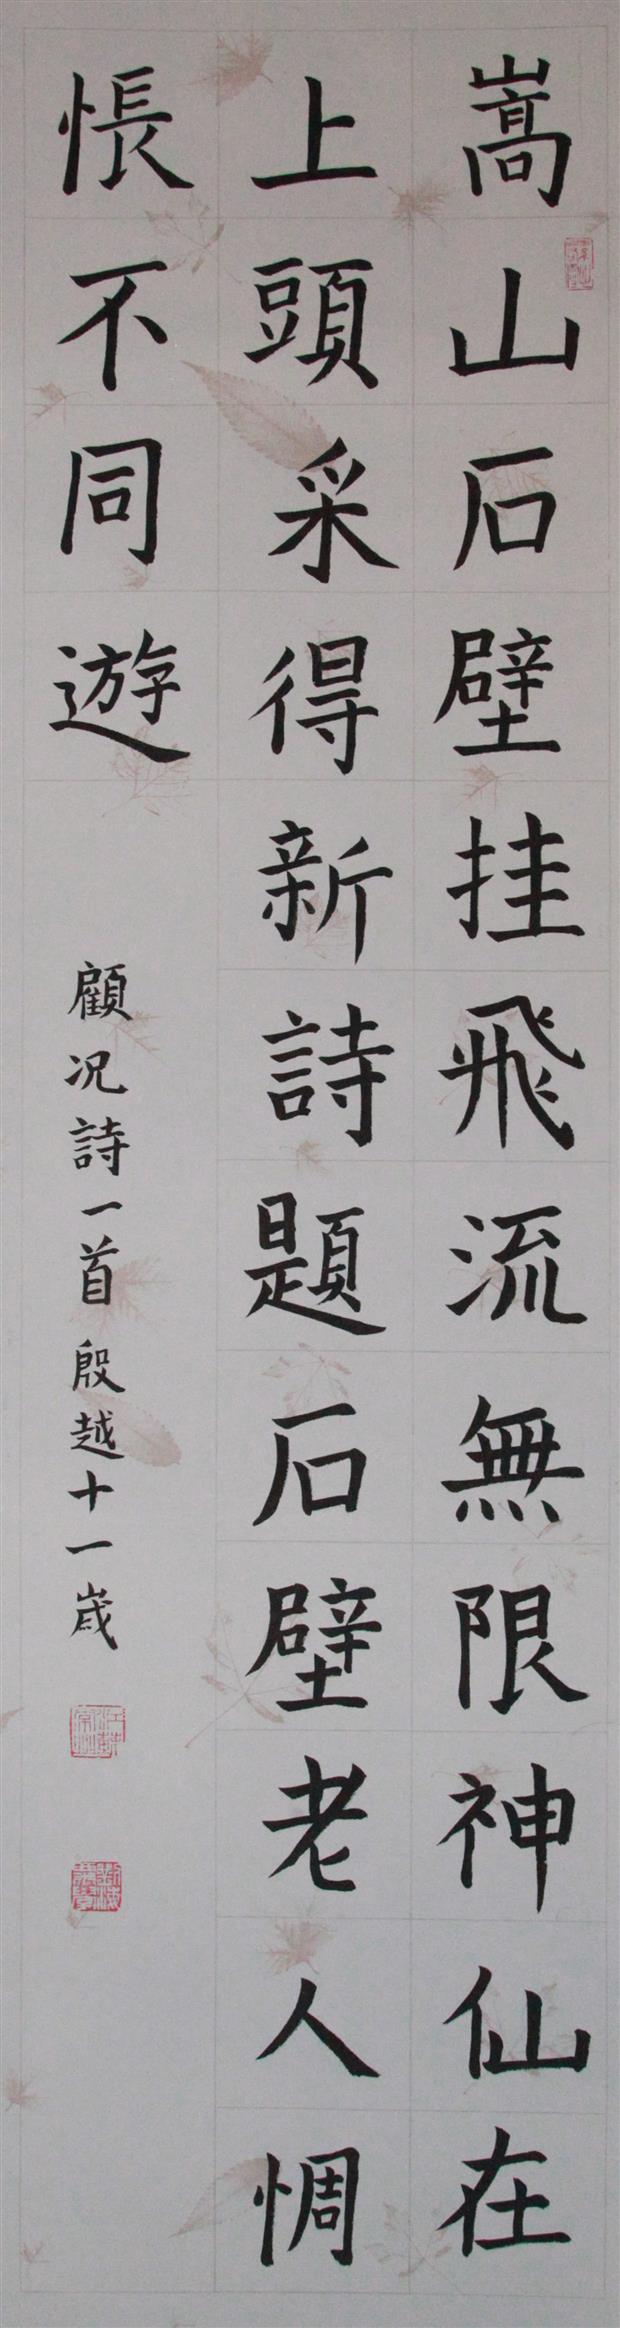 嵩山石壁挂飛流無限神仙在
上頭采得新詩題石壁老人惆
悵不同遊
顧况詩一首殷越十一歲